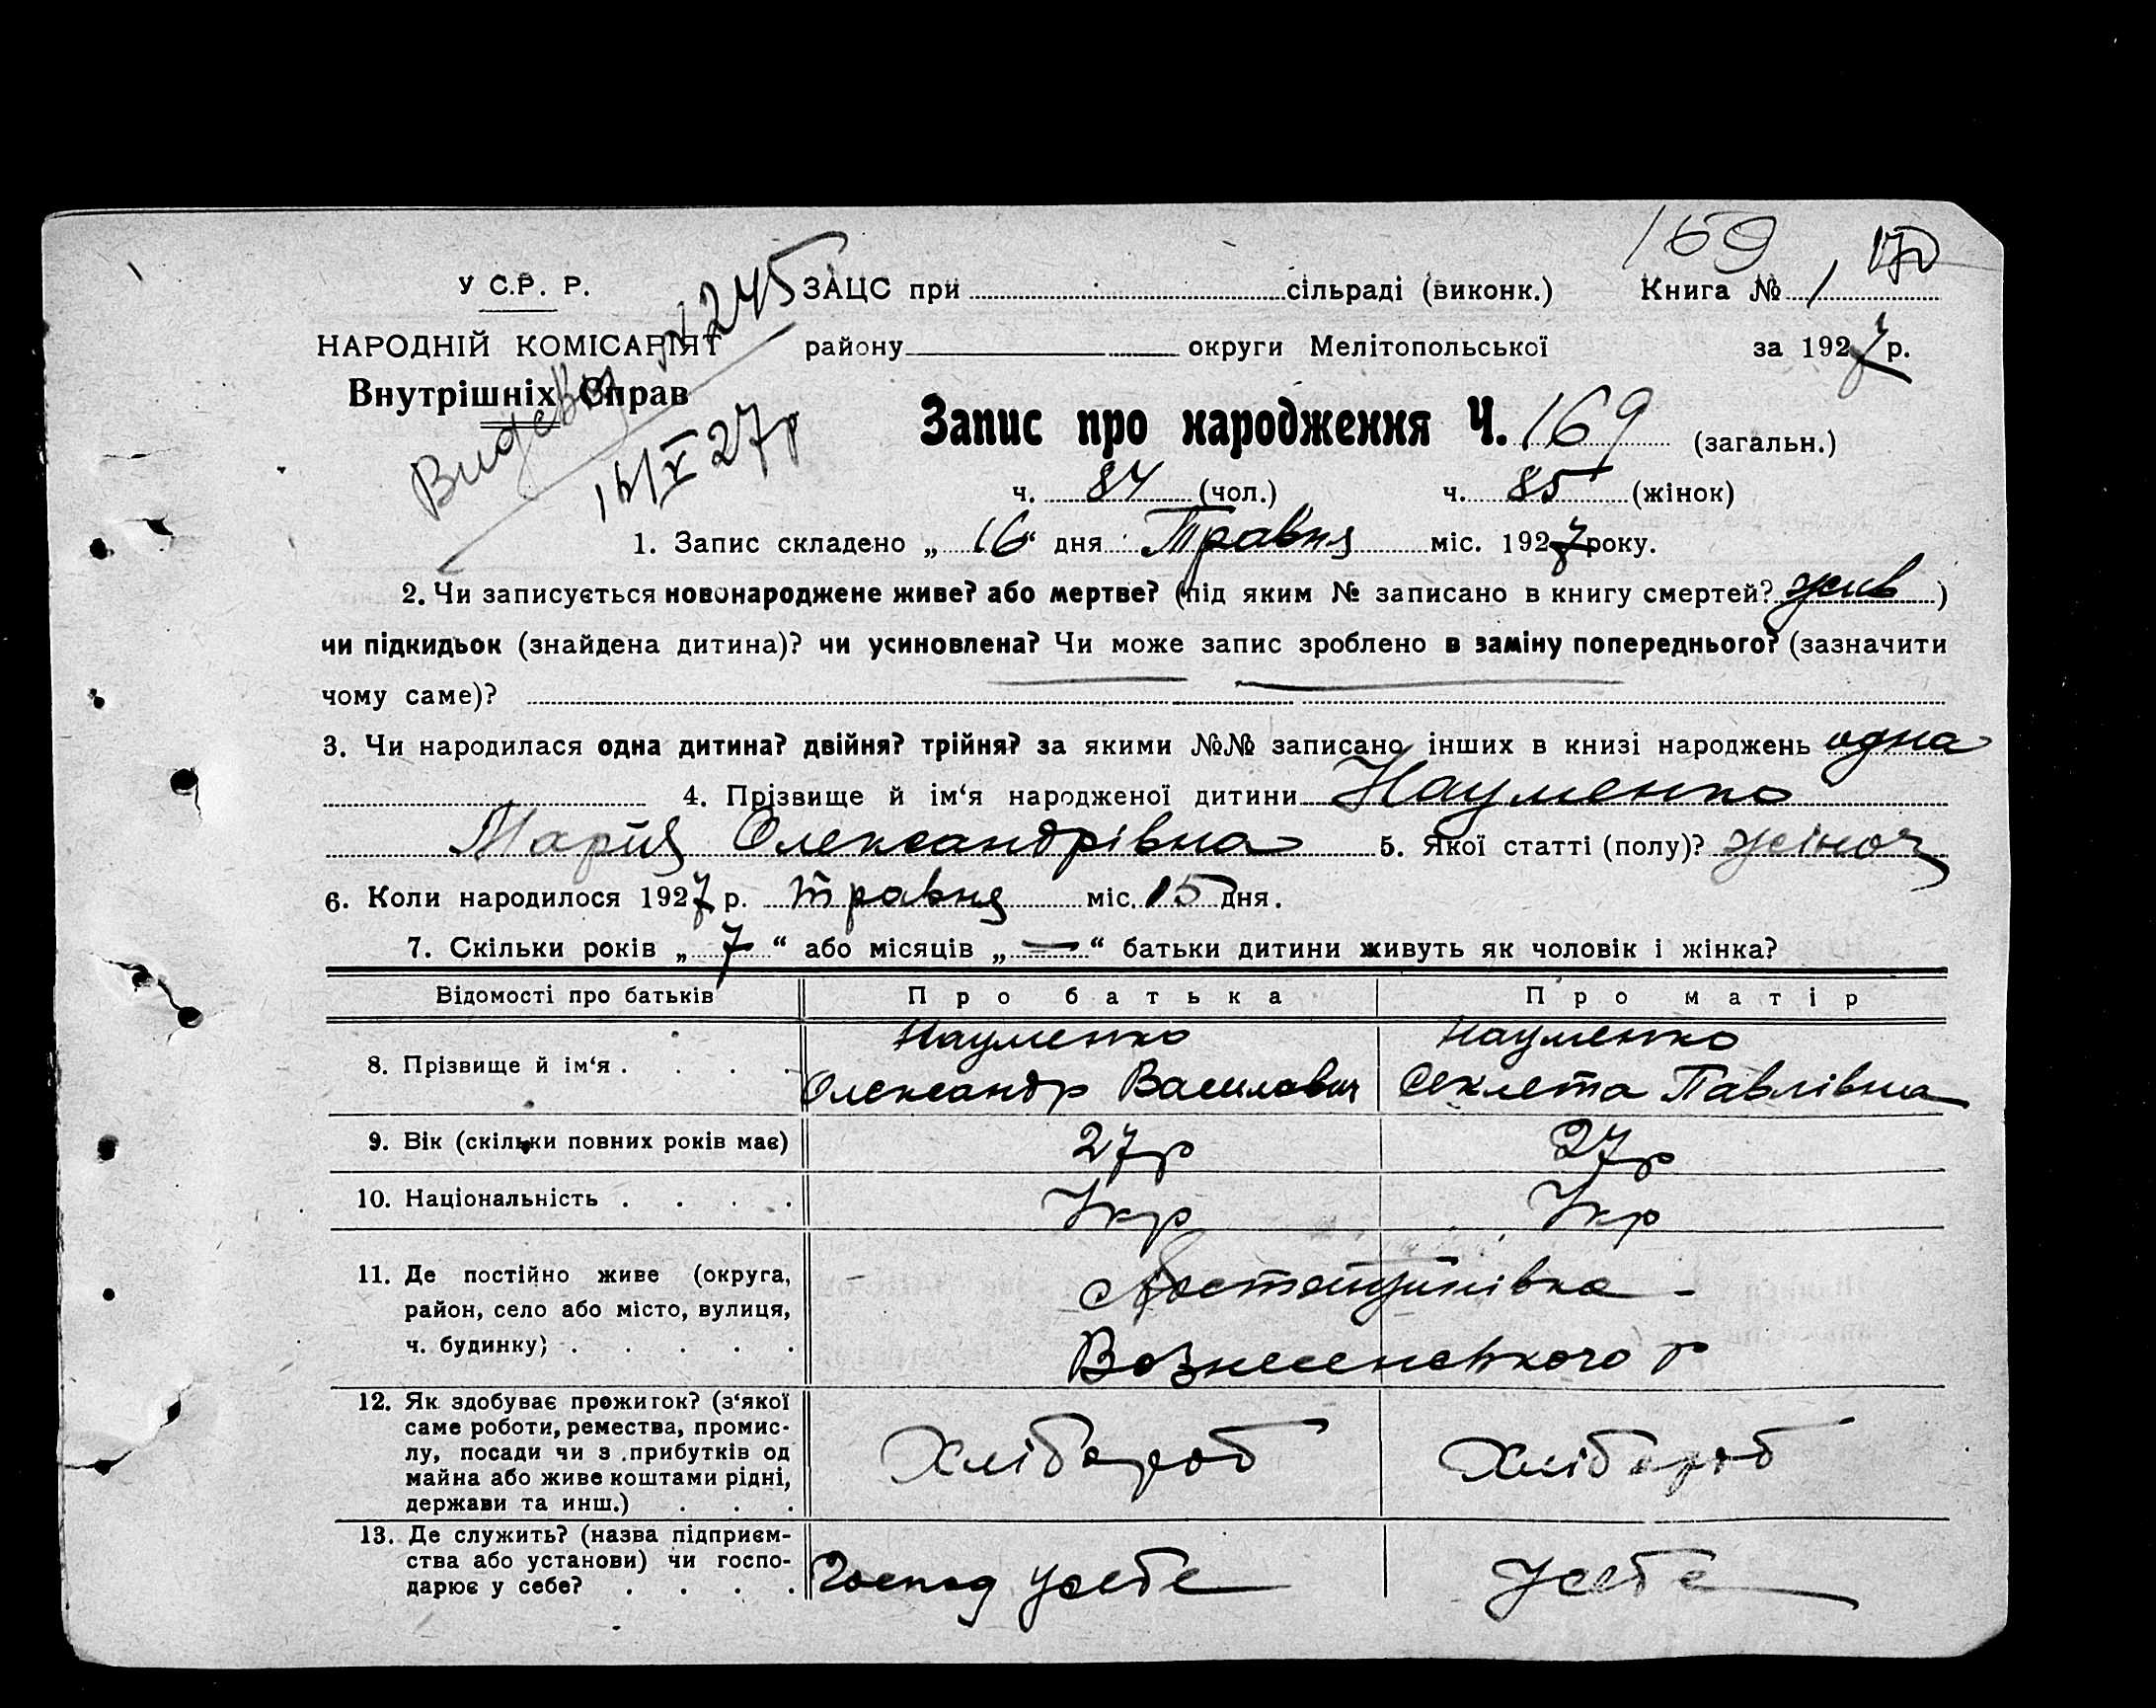 169 170
У С.Р. Р. ЗАЦС при сільраді (виконк.) Книга № 1
НАРОДНІЙ КОМІСАРІЯТ району округи Мелітопольської за 1927 р.
Внутрішніх Справ
№ 245
16/V 27р
Запис про народження Ч. 169 (загальн.)
ч. 84 (чол.) ч. 85 (жінок)
1. Запис складено „ 16 “ дня Травня міс. 1927 року.
2. Чи записується новонароджене живе? або мертве? (під яким № записано в книгу смертей? жив )
чи підкидьок (знайдена дитина)? чи усиновлена? Чи може запис зроблено в заміну попереднього? (зазначити
чому саме)?
3. Чи народилася одна дитина? двійня? трійня? за якими №№ записано інших в книзі народжень одна
4. Прізвище й ім‘я народженої дитини Науменко
Марія Олександрівна 5. Якої статті (полу)? жіноч
6. Коли народилося 1927 р. травня міс. 15 дня.
7. Скільки років „ 7 “ або місяців „ — “ батьки дитини живуть як чоловік і жінка?
Відомості про батьків Про батька Про матір
Науменко Науменко
8. Прізвище й ім‘я . . . . Олександр Василович Секлета Павлівна
9. Вік (скільки повних років має) 27р 27р
10. Національність . . . . Укр Укр
11. Де постійно живе (округа,
район, село або місто, вулиця,
ч. будинку) . . . . . Вознесенського р
12. Як здобуває прожиток? (з‘якої
саме роботи, ремества, промис-
лу, посади чи з прибутків од Хлібороб Хлібороб
майна або живе коштами рідні,
держави та инш.) . . .
13. Де служить? (назва підприєм-
ства або установи) чи госпо- Господ у себе У себе
дарює у себе? . . . .